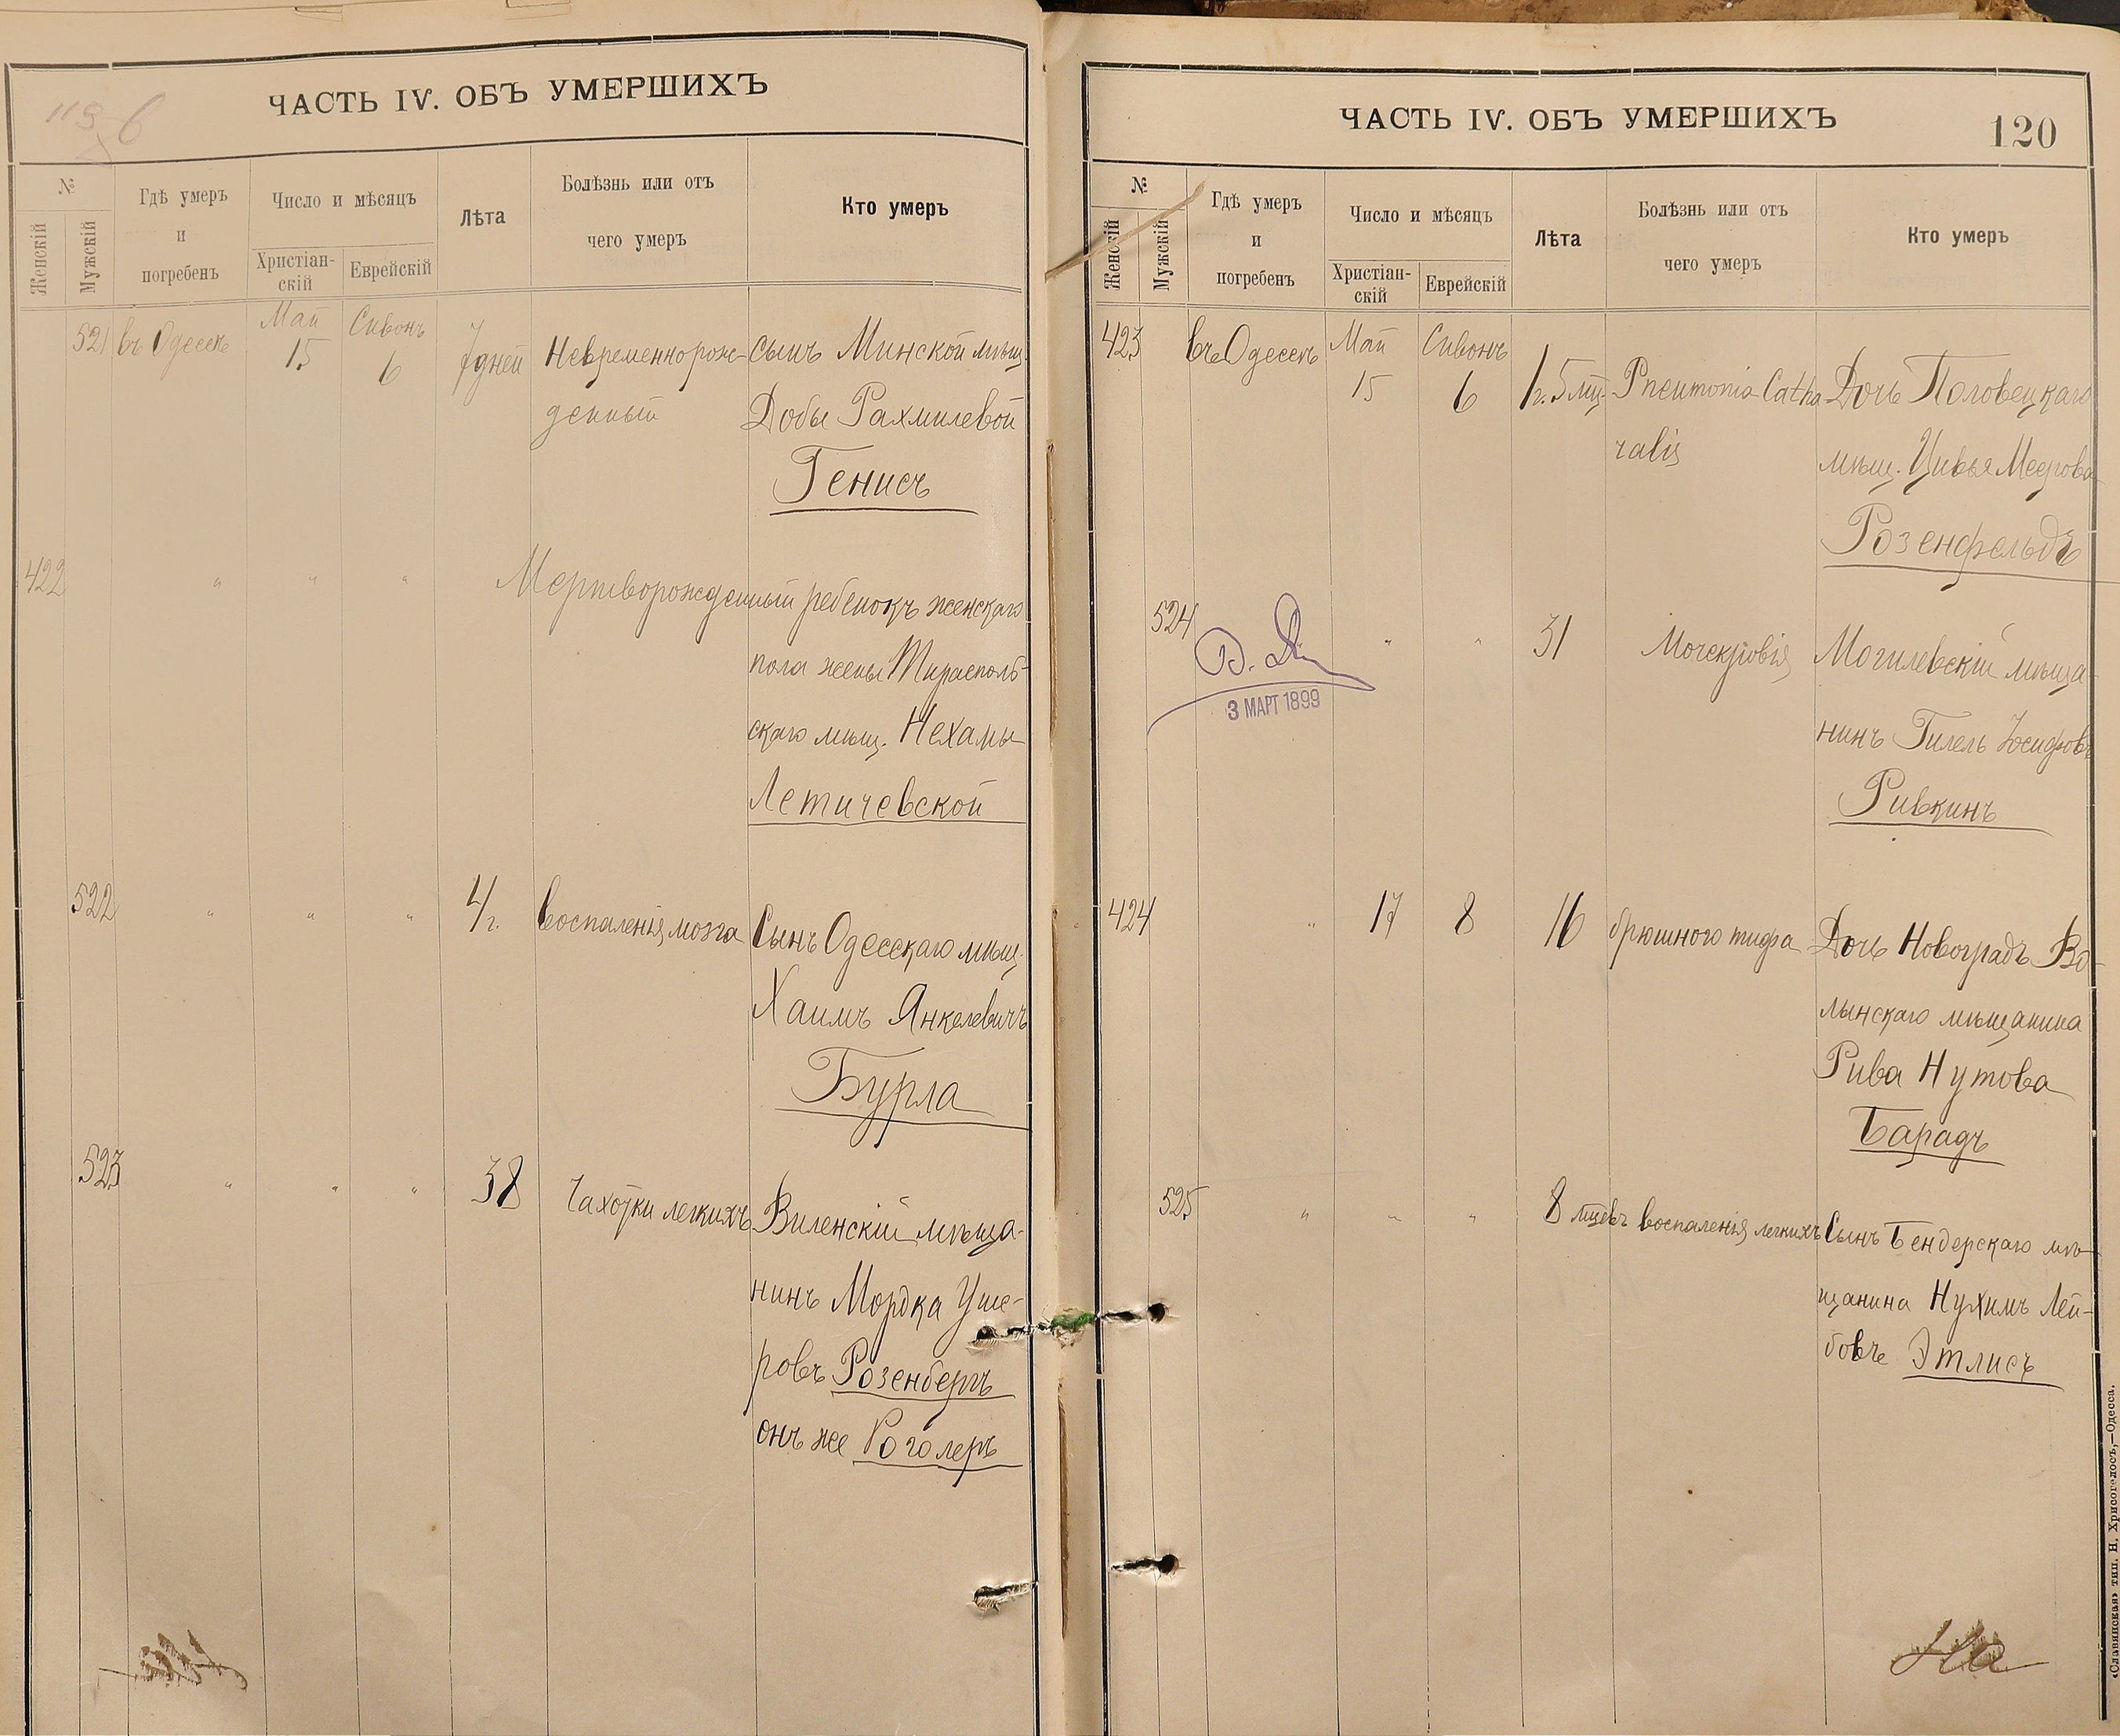 ЧАСТЬ IV. ОБЪ УМЕРШИХЪ
№
Женскій
Мужскій
Гдѣ умеръ
и
погребенъ
Число и мѣсяцъ
Христіан-
скій
Еврейскій
Лѣта
Болѣзнь или отъ
чего умеръ
Кто умеръ
521 въ Одессѣ Май 15 Сивонъ 6 7 дней Невременнорож- сынъ Минской мѣщ.
денный Добы Рахмилевой
Генисъ
422 " " " Мертворожденный ребенокъ женскаго
пола жены Тирасполь-
скаго мѣщ. Нехамы
Летичевской
522 " " " 4 г. воспаленія мозга Сынъ Одесскаго мѣщ.
Хаимъ Янкелевичъ
Бурла
523 " " " 38 Чахотки легкихъ Виленскій мѣща-
нинъ Мордка Уше-
ровъ Розенбергъ
онъ же Роголеръ
ЧАСТЬ IV. ОБЪ УМЕРШИХЪ
120
№
Женскій
Мужскій
Гдѣ умеръ
и
погребенъ
Число и мѣсяцъ
Христіан-
скій
Еврейскій
Лѣта
Болѣзнь или отъ
чего умеръ
Кто умеръ
423 въ Одессѣ Май 15 Сивонъ 6 1 г. 5 мц. Pneumonia Catha Дочь Половецкаго
ralis мѣщ. Цивья Меерова
Розенфельдъ
524 " " 31 Мочекровія Могилевскій мѣща-
нинъ Гилель Іосифовъ
Ривкинъ
3 МАРТ 1899
424 " 17 8 16 брюшного тифа Дочь Новоградъ Во-
лынскаго мѣщанина
Рива Нутова
Барадъ
525 " " " 8 мцевъ воспаленія легкихъ Сынъ Бендерскаго мѣ-
щанина Нухимъ Лей-
бовъ Этлисъ
На
«Славянская» тип. Н. Хрисогелосъ,—Одесса.